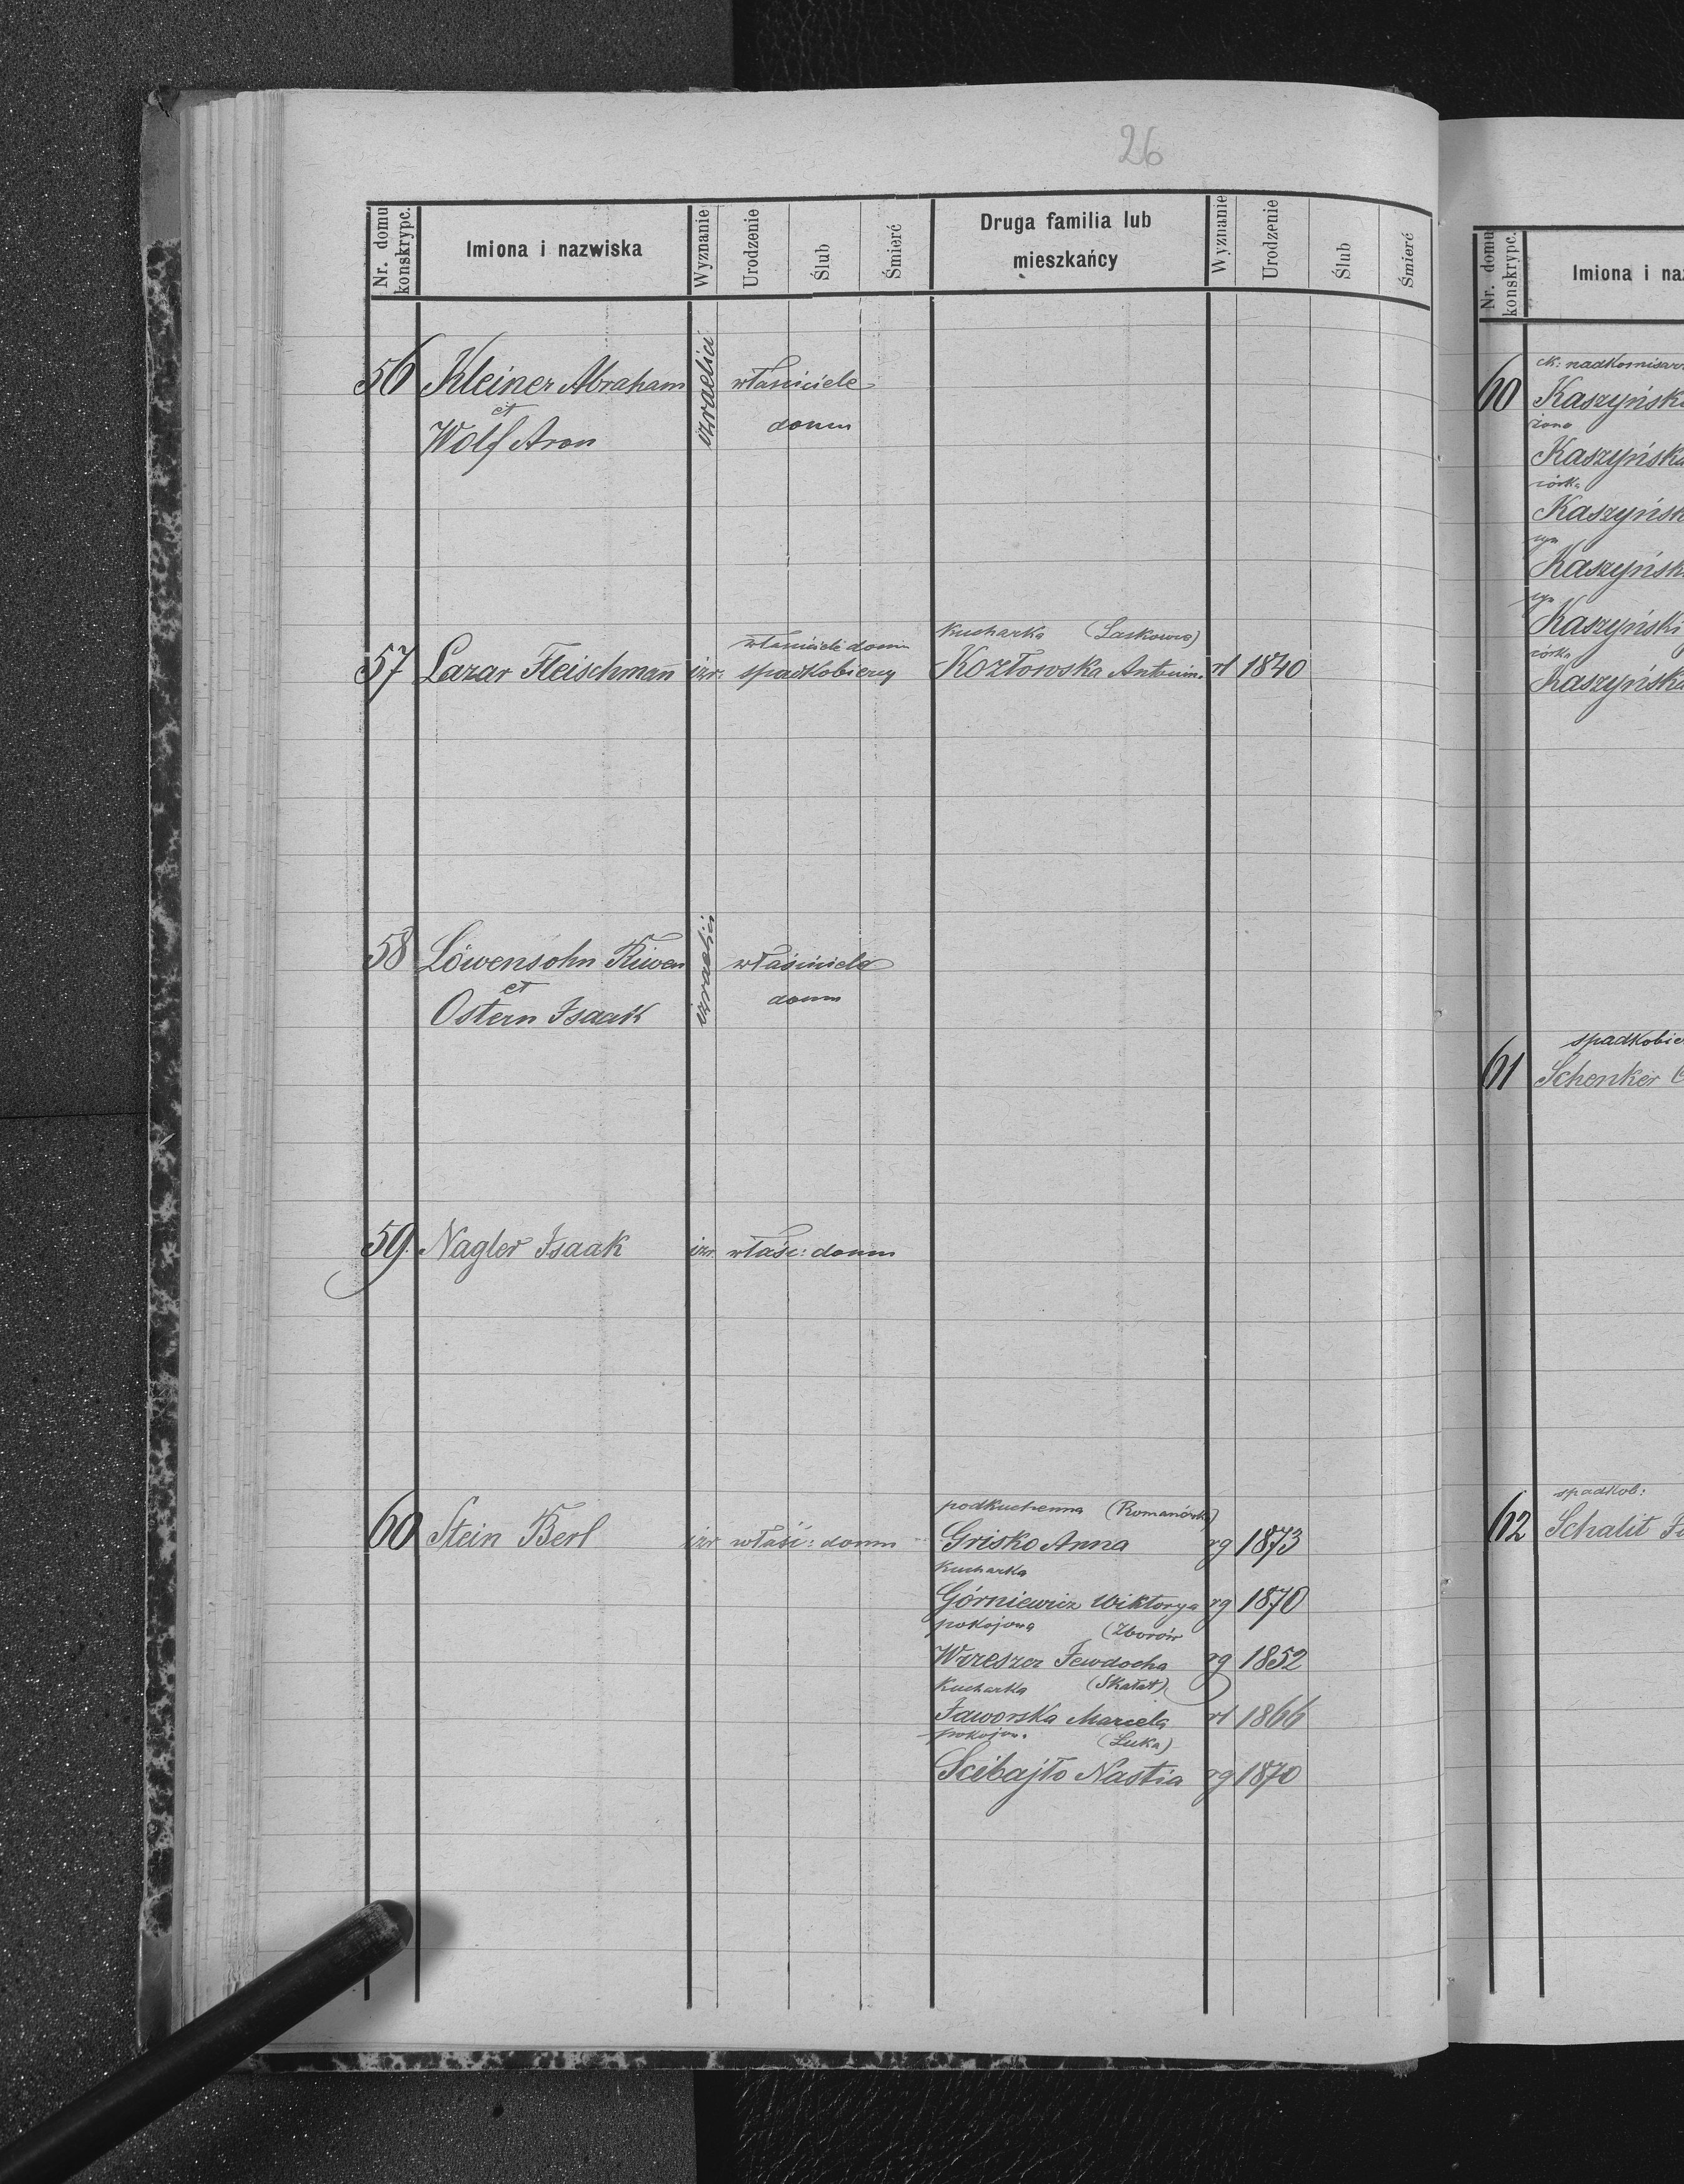 26
Nr. domu konskrypc.
Imiona i nazwiska
Wyznanie
Urodzenie
Ślub
Śmierć
Druga familia lub
mieszkańcy
Wyznanie
Urodzenie
Ślub
Śmierć
56 Kleiner Abraham izraelici właściciele
et
Wolf Aron domu
właściciele domu kucharka (Laskowce)
57 Lazar Fleischman̄ izr: spadkobiercy Kozłowska Antonin. rł 1840
58 Löwensohn Ruwen izraelici właściciele
et domu
Ostern Isaak
59. Nagler Isaak izr właśc: domu
podkuchenna (Romanówka)
60 Stein Berl izr właśc: domu Grisko Anna rg 1873
kucharka
Górniewicz Wiktorya rg 1870
pokojowa (Zborów
Wrzeszcz Jewdocha rg 1852
kucharka (Skałat)
Jaworska Marcela rł 1866
pokojow. (Łuka)
Scibajło Nastia rg 1870
Nr. domu konskrypc.
Imiona i na
ck: nadkomisarz
60 Kaszyńsk
żona
Kaszyńska
córka
Kaszyńsk
syn
Kaszyńsk
syn
Kaszyński
córka
Kaszyńska
spadkobie
61 Schenker
spadkob:
62 Schalit